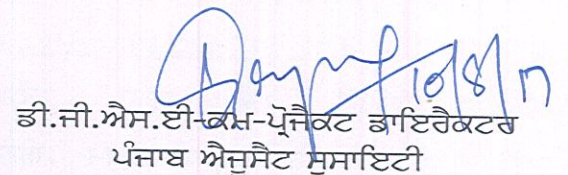 10/8/17
ਡੀ.ਜੀ.ਐਸ.ਈ-ਕਮ-ਪ੍ਰੋਜੈਕਟ ਡਾਇਰੈਕਟਰ
ਪੰਜਾਬ ਐਜੂਸੈਟ ਸੁਸਾਇਟੀ